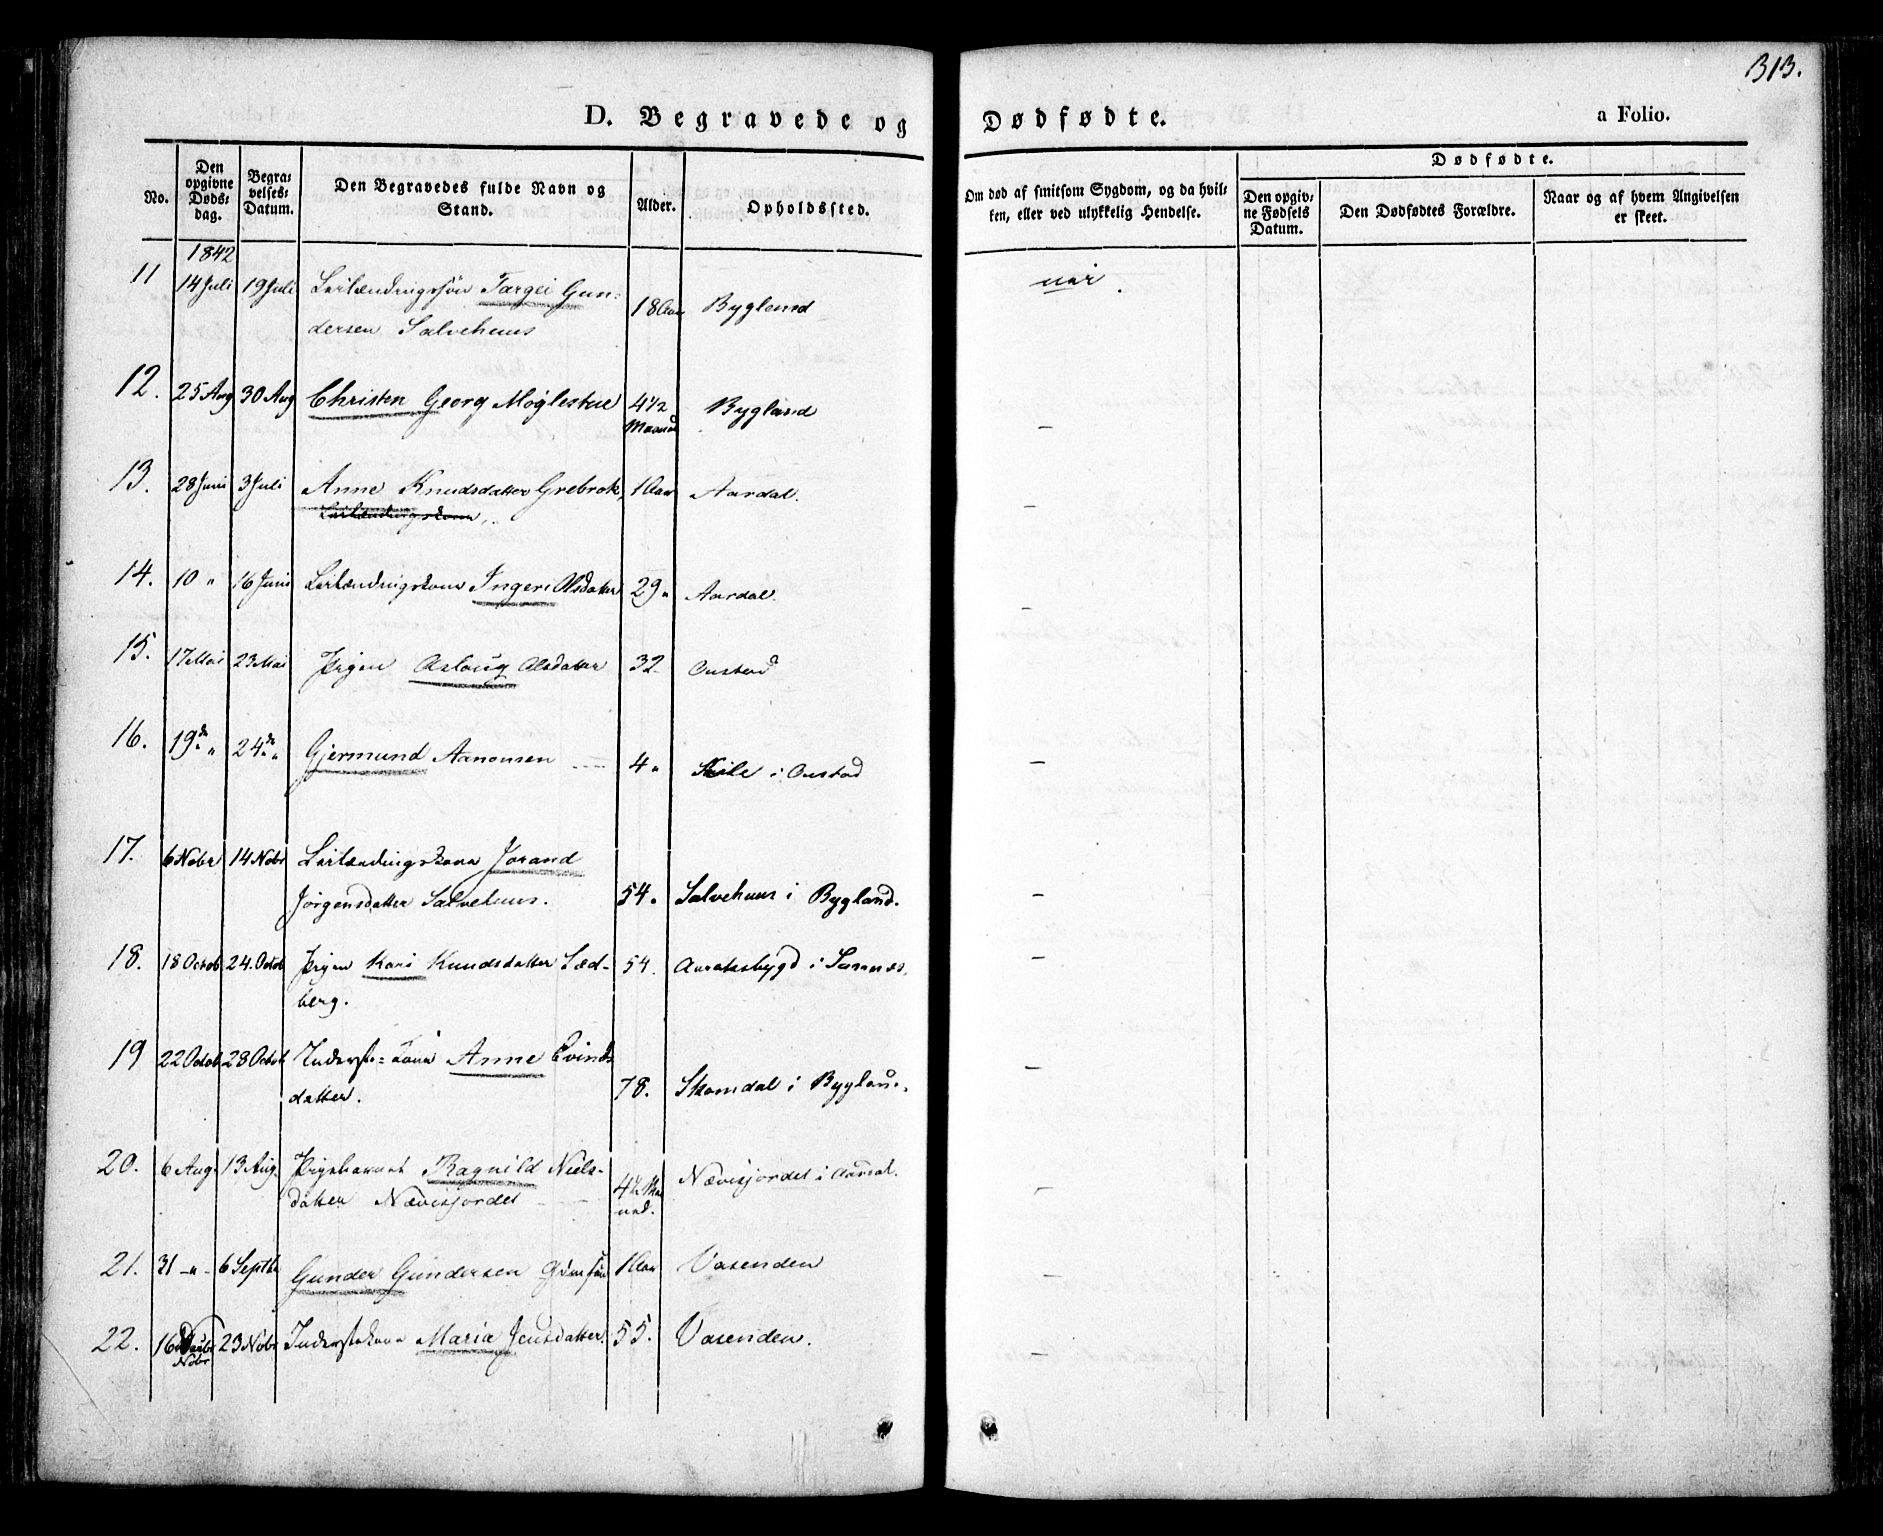 313.
D. Begravede og Dødfødte. a Folio.
No.
Den opgivne Døds-dag.
Begra-velses-Datum.
Den Begravedes fulde Navn og Stand.
Alder.
Opholdssted.
Om død af smitsom Sygdom, og da hvil-ken, eller ved ulykkelig Hendelse.
Dødfødte.
Den opgiv-ne Fødsels Datum.
Den Dødfødtes Forældre.
Naar og af hvem Angivelsen er skeet.
1842
11 14 Juli 19 Juli Leilændingssøn Targei Gun-
dersen Salvehuus 18 Aar Bygland
12. 25 Aug 30 Aug Christen Georg Møglestue 4 1/2 Maaned Bygland –
13. 28 Juni 3 Juli Anne Knudsdatter Grebrok, 1 Aar Aardal. –
Leilændingskone,
14. 10 " 16 Juni Leilændingskone Ingeri Olsdatter 29 " Aardal. –
15. 17 Mai 23 Mai Pigen Aslaug Olsdatter 32 Oustad
16. 19 de " 24 de " Gjermund Aanonsen 4 " i Oustad –
17. 6 Nobr 14 Nobr Leilændingskone Jorand
Jörgensdatter Salvehuus. 54. Salvehuus i Bygland. –
18. 18 Octob 24. Octob Pigen Kari Knudsdatter Læd-
berg. 54. i Sannes. –
19 22 Octob 28 Octob Inderste-kone Anne Evinds
datter. 78. Skomdal i Bygland. –
20. 6 Aug. 13 Aug. Pigebarnet Ragnild Niels-
datter Nævisjordet 4 1/2 Maa
ned. Nævisjordet i Aardal. –
21. 31 – " – 6 Septbr Gunder Gundersen 1 Aar Vasenden –
22. 16 Nobr 23 Nobr Inderstekone Maria Jensdatter. 55. Vasenden. –